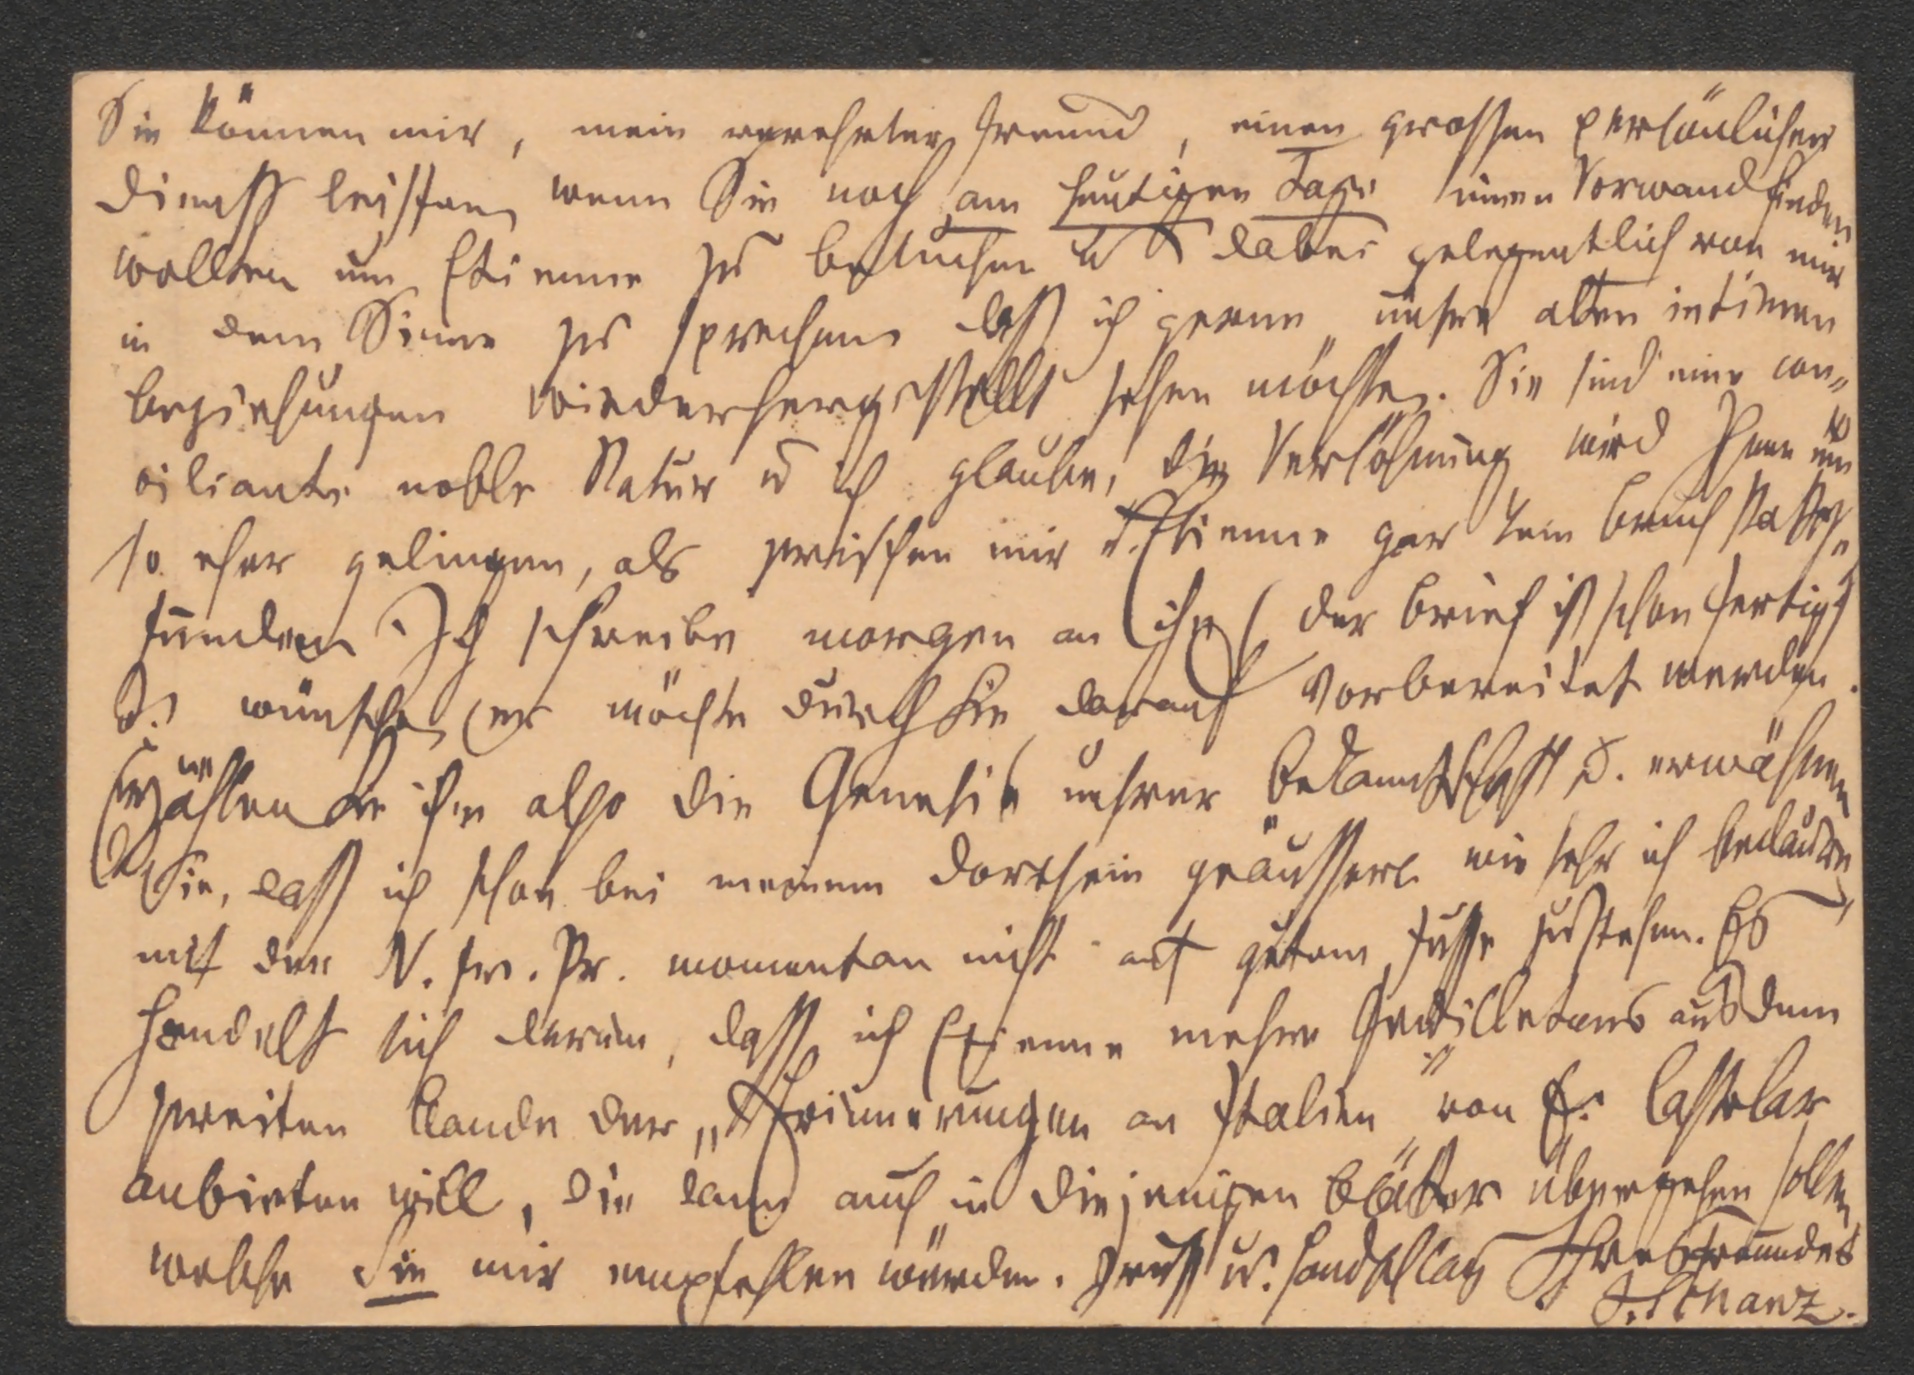 Sie können mir, mein verehrter Freund, einen grossen persönlichen
Dienst leisten, wenn Sie noch am heutigen Tage einen Vorwand finden
wollten um Etienne zu besuchen u dabei gelegentlich von mir
in dem Sinne zu sprechen dass ich gerne unsere alten intimen
Beziehungen wiederhergestellt sehen möchte. Sie sind eine con„
ciliante noble Natur u ich glaube, die Versöhnung wird Ihnen um
so eher gelingen, als zwischen mir u. Etienne gar kein Bruch stattge„
funden. Ich schreibe morgen an ihn (der Brief ist schon fertig)
u. wünsche, er möchte durch Sie darauf vorbereitet werden.
Erzählen Sie ihm also die Genesis unsrer Bekanntschaft u. erwähnen
Sie, dass ich schon bei meinem Dortsein geäussert wie sehr ich bedaure,
mit der N. fr. Pr. momentan nicht auf gutem Fusse zu stehen. Es
handelt sich darum, dass ich Etienne mehre Feuilletons aus dem
zweiten Bande der „Erinnerungen an Italien" von E. Castelar
anbieten will, die dann auch in diejenigen Blätter übergehen sollen
welche Sie mir empfehlen würden. Gruss u. Handschlag Ihres Freundes
J. Schanz.